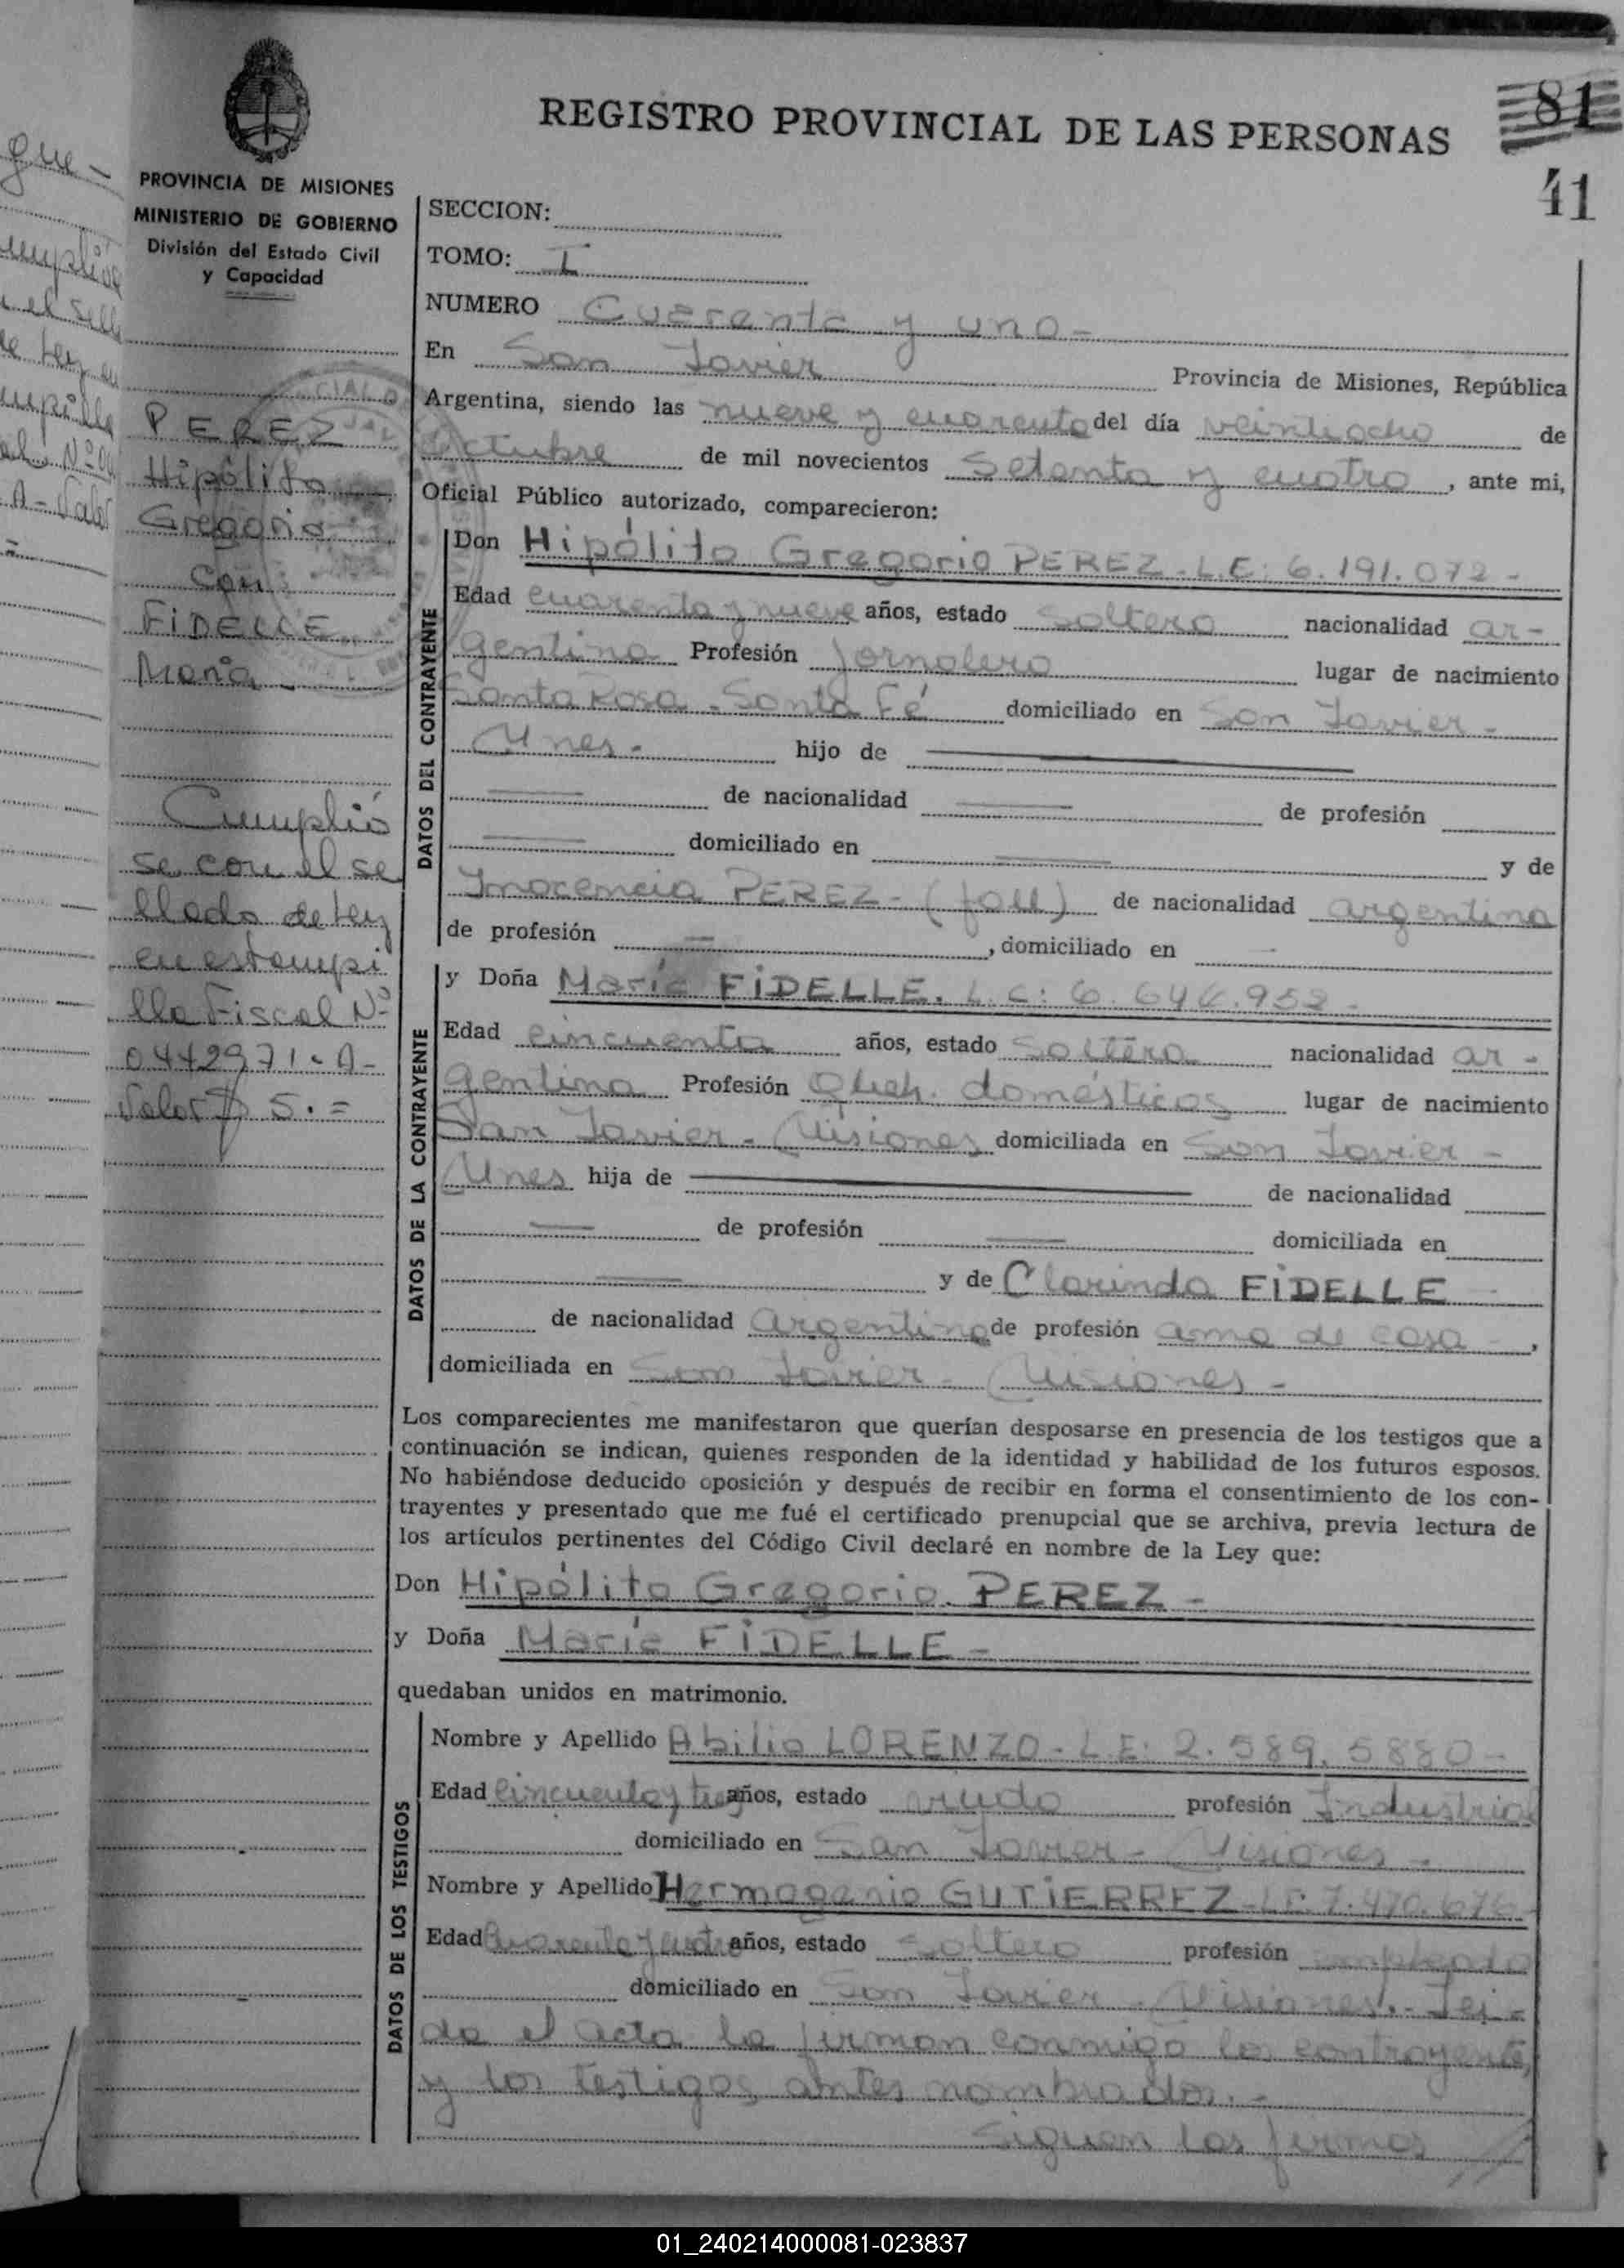 REGISTRO PROVINCIAL DE LAS PERSONAS
81
41
PROVINCIA DE MISIONES
MINISTERIO DE GOBIERNO
División del Estado Civil
y Capacidad
PEREZ
Hipólito
Gregorio
con
FiDELLE
María -
Cumplió
se con el se
llado de ley
en estampi
lla Fiscal Nº
0442971-A-
Valor $ 5.=
SECCION:
TOMO: I
NUMERO Cuarenta y uno-
En San Javier Provincia de Misiones, República
Argentina, siendo las nueve y cuarenta del día veintiocho de
Octubre de mil novecientos Setenta y cuatro, ante mi,
Oficial Público autorizado, comparecieron:
DATOS DEL CONTRAYENTE
Don Hipólito Gregorio PEREZ-L.E: 6.191.072-
Edad cuarenta y nueve años, estado Soltero nacionalidad ar-
gentina Profesión Jornalero lugar de nacimiento
Santa Rosa-Santa Fé domiciliado en San Javier-
Mnes- hijo de
de nacionalidad de profesión
domiciliado en y de
Inocencia PEREZ-(fall) de nacionalidad argentina
de profesión - , domiciliado en -
DATOS DE LA CONTRAYENTE
y Doña María FiDELLE. L.C: 6.646.952-
Edad cincuenta años, estado Soltera nacionalidad ar-
gentina Profesión Queh. domésticos lugar de nacimiento
San Javier-Misiones domiciliada en San Javier-
Mnes hija de de nacionalidad
de profesión domiciliada en
y de Clarinda FiDELLE
de nacionalidad argentina de profesión ama de casa,
domiciliada en San Javier-Misiones-
Los comparecientes me manifestaron que querían desposarse en presencia de los testigos que a
continuación se indican, quienes responden de la identidad y habilidad de los futuros esposos.
No habiéndose deducido oposición y después de recibir en forma el consentimiento de los con-
trayentes y presentado que me fué el certificado prenupcial que se archiva, previa lectura de
los artículos pertinentes del Código Civil declaré en nombre de la Ley que:
Don Hipólito Gregorio PEREZ-
y Doña María FiDELLE-
quedaban unidos en matrimonio.
DATOS DE LOS TESTIGOS
Nombre y Apellido Abilio LORENZO-L.E: 2.589.5880-
Edad cincuenta y tres años, estado viudo profesión Industrial
domiciliado en San Javier-Misiones-
Nombre y Apellido Hermogenio GUTiERREZ-L.E: 7.470.676-
Edad Cuarenta y cuatro años, estado Soltero profesión empleado
domiciliado en San Javier-Misiones.-Leí-
da el acta la firman conmigo los contrayentes
y los testigos antes nombrados.-
Siguen las firmas //
01_240214000081-023837